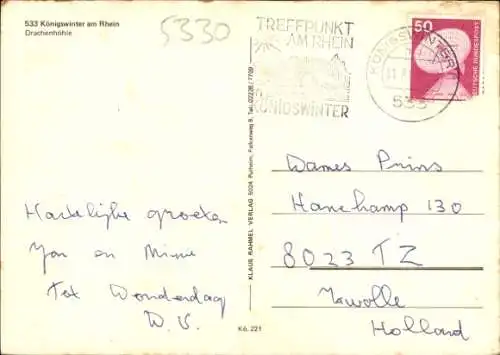 533 Königswinter am Rhein
Drachenhöhle
5330
TREFFPUNKT
AM RHEIN
KÖNIGSWINTER
KÖNIGSWINTER
533
50
DEUTSCHE BUNDESPOST
KLAUS RAHMEL VERLAG 5024 Pulheim, Falkenweg 9, Tel.
Hartelijke groeten
Jan en Minie
Tot Donderdag
D.V.
Kö. 221
Dames Prins
Hanekamp 130
8023 TZ
Zwolle
Holland